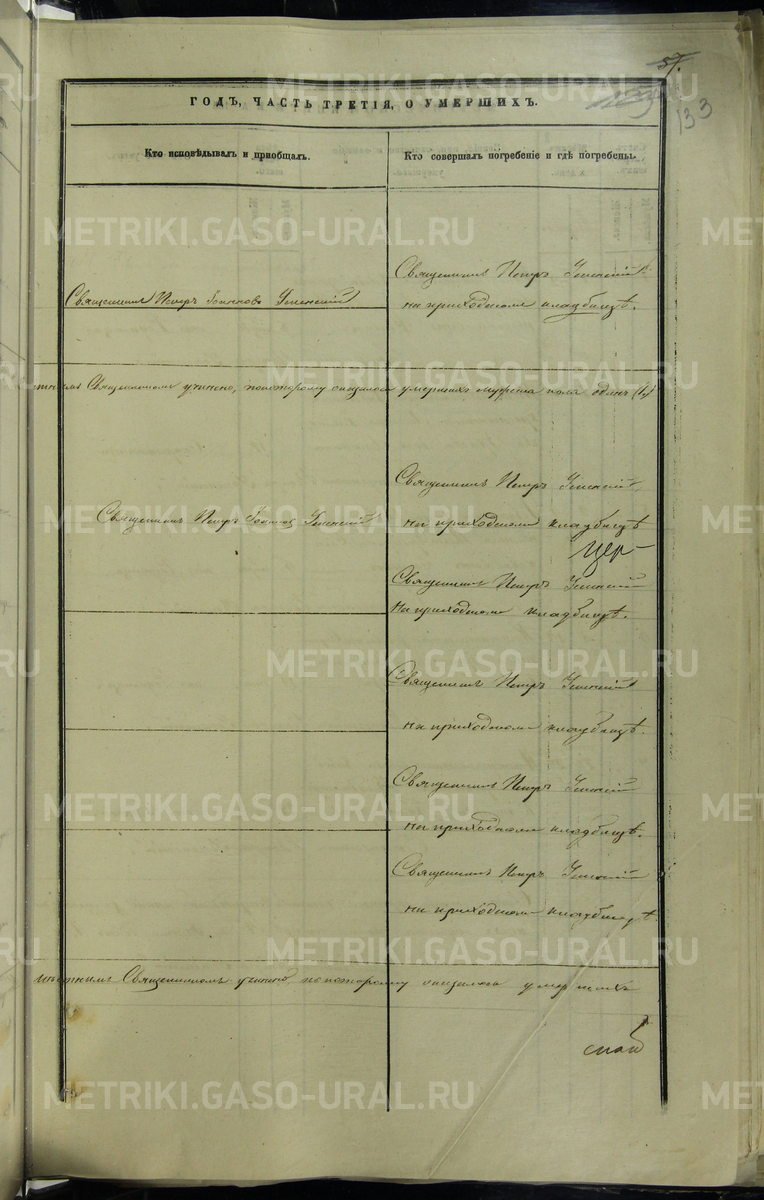 57.
133
ГОДЪ, ЧАСТЬ ТРЕТІЯ, О УМЕРШИХЪ.
Кто исповѣдывалъ и приобщалъ.
Кто совершалъ погребеніе и гдѣ погребены.
Священникъ Петръ Успенскій
на приходскомъ кладбищѣ.
Священникъ Петръ Іоанновъ Успенскій
Священникомъ учинено, по которому оказалось умершихъ мужеска пола одинъ (1)
Священникъ Петръ Успенскій
Священникъ Петръ Іоанновъ Успенскій
на приходскомъ кладбищѣ
Цер-
Священникъ Петръ Успенскій
на приходскомъ кладбищѣ.
Священникъ Петръ Успенскій
на приходскомъ кладбищѣ.
Священникъ Петръ Успенскій
на приходскомъ кладбищѣ.
Священникъ Петръ Успенскій
на приходскомъ кладбищѣ.
Священникомъ учинено, по которому оказалось умершихъ
METRIKI.GASO-URAL.RU